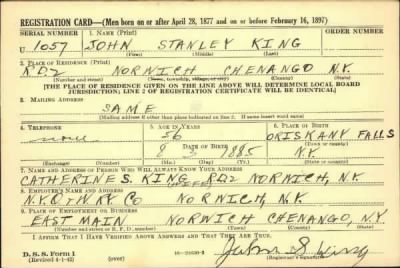 REGISTRATION CARD—(Men born on or after April 28, 1877 and on or before February 16, 1897)
SERIAL NUMBER 1. NAME (Print)
U 1057 JOHN STANLEY KING
(First) (Middle) (Last)
2. PLACE OF RESIDENCE (Print)
RD2 NORWICH CHENANGO N.Y.
(Number and street) (Town, township, village, or city) (County) (State)
[THE PLACE OF RESIDENCE GIVEN ON THE LINE ABOVE WILL DETERMINE LOCAL BOARD
JURISDICTION; LINE 2 OF REGISTRATION CERTIFICATE WILL BE IDENTICAL]
3. MAILING ADDRESS
SAME
[Mailing address if other than place indicated on line 2. If same insert word same]
4. TELEPHONE 5. AGE IN YEARS 6. PLACE OF BIRTH
none 56 ORISKANY FALLS
DATE OF BIRTH (Town or county)
8 3 1885 N.Y.
(Exchange) (Number) (Mo.) (Day) (Yr.) (State or country)
7. NAME AND ADDRESS OF PERSON WHO WILL ALWAYS KNOW YOUR ADDRESS
CATHERINE S. KING RD2 NORWICH, N.Y.
8. EMPLOYER'S NAME AND ADDRESS
N.Y.O & W RY CO NORWICH, N.Y.
9. PLACE OF EMPLOYMENT OR BUSINESS
EAST MAIN NORWICH CHENANGO, N.Y.
(Number and street or R. F. D. number) (Town) (County) (State)
I AFFIRM THAT I HAVE VERIFIED ABOVE ANSWERS AND THAT THEY ARE TRUE.
D. S. S. Form 1
(Revised 4-1-42) (over) John S. King